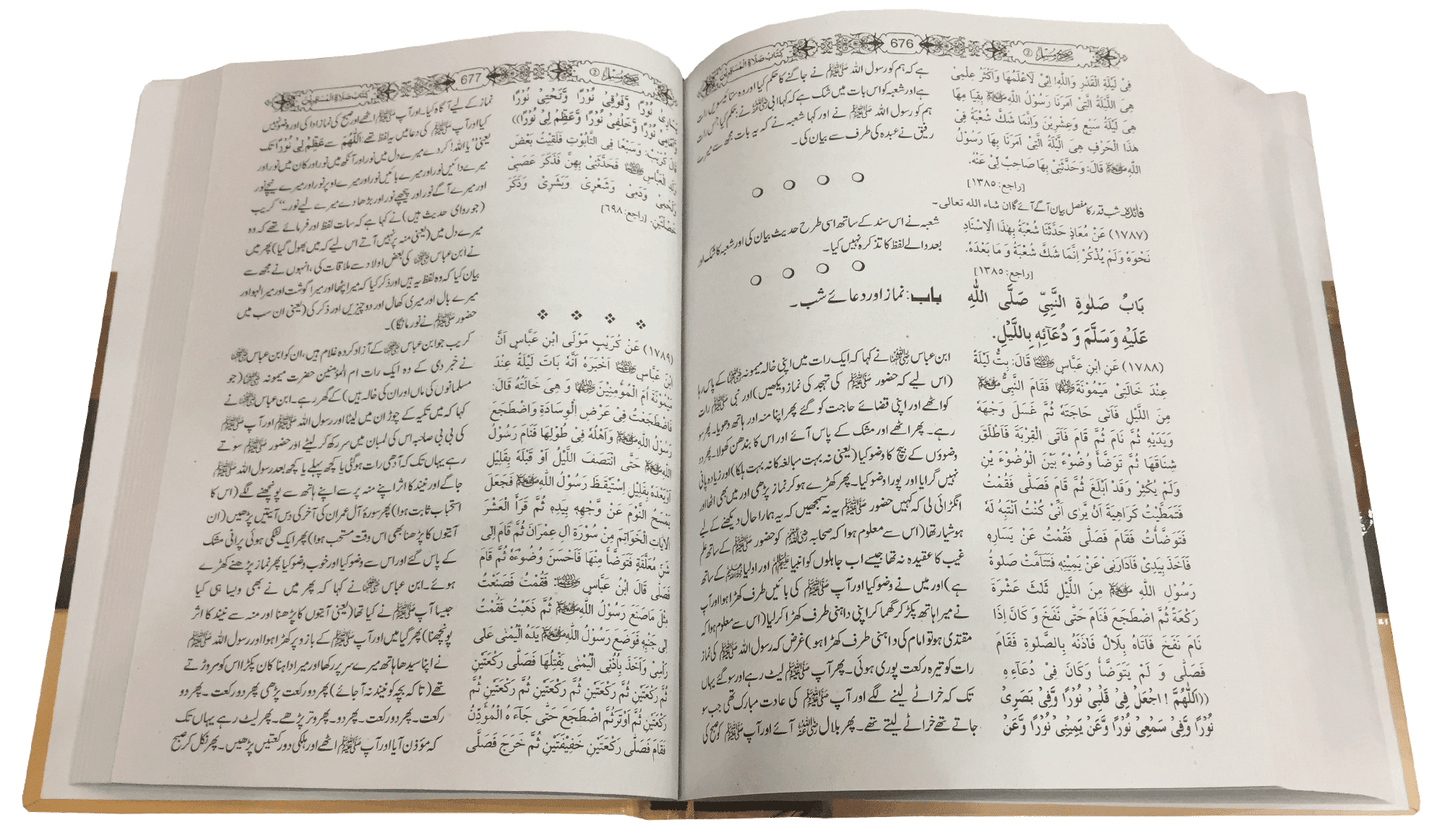 صحیح مسلم ②
676
کتاب صلاۃ المسافرین
فِىْ لَيْلَةِ الْقَدْرِ وَاللّٰهِ اِنِّىْ لَاَعْلَمُهَا وَاَكْثَرُ عِلْمِىْ
هِىَ اللَّيْلَةُ الَّتِىْ اَمَرَنَا رَسُوْلُ اللّٰهِ ﷺ بِقِيَامِهَا
هِىَ لَيْلَةُ سَبْعٍ وَعِشْرِيْنَ وَاِنَّمَا شَكَّ شُعْبَةُ فِىْ
هٰذَا الْحَرْفِ هِىَ اللَّيْلَةُ الَّتِىْ اَمَرَنَا بِهَا رَسُوْلُ
اللّٰهِ ﷺ قَالَ: وَحَدَّثَنِىْ بِهَا صَاحِبٌ لِىْ عَنْهُ.
[راجع: ١٣٨٥]
فائدہ: شب قدر کا مفصل بیان آگے آئے گا ان شاء اللہ تعالی۔
(١٧٨٧) عَنْ مُعَاذٍ حَدَّثَنَا شُعْبَةُ بِهٰذَا الْاِسْنَادِ
نَحْوَهُ وَلَمْ يَذْكُرْ اِنَّمَا شَكَّ شُعْبَةُ وَ مَا بَعْدَهُ.
[راجع: ١٣٨٥]
بَابُ صَلٰوةِ النَّبِىِّ صَلَّى اللّٰهُ
عَلَيْهِ وَسَلَّمَ وَ دُعَآئِهٖ بِاللَّيْلِ.
(١٧٨٨) عَنِ ابْنِ عَبَّاسٍ قَالَ: بِتُّ لَيْلَةً
عِنْدَ خَالَتِىْ مَيْمُوْنَةَ فَقَامَ النَّبِىُّ ﷺ
مِنَ اللَّيْلِ فَاَتٰى حَاجَتَهُ ثُمَّ غَسَلَ وَجْهَهُ
وَيَدَيْهِ ثُمَّ نَامَ ثُمَّ قَامَ فَاَتَى الْقِرْبَةَ فَاَطْلَقَ
شِنَاقَهَا ثُمَّ تَوَضَّأَ وُضُوْءً بَيْنَ الْوُضُوْءَ يْنِ
وَلَمْ يُكْثِرْ وَقَدْ اَبْلَغَ ثُمَّ قَامَ فَصَلّٰى فَقُمْتُ
فَتَمَطَّيْتُ كَرَاهِيَةَ اَنْ يَّرٰى اَنِّىْ كُنْتُ اَنْتَبِهُ لَهٗ
فَتَوَضَّأْتُ فَقَامَ فَصَلّٰى فَقُمْتُ عَنْ يَسَارِهٖ
فَاَخَذَ بِيَدِىْ فَاَدَارَنِىْ عَنْ يَمِيْنِهٖ فَتَتَامَّتْ صَلٰوةُ
رَسُوْلِ اللّٰهِ ﷺ مِنَ اللَّيْلِ ثَلٰثَ عَشْرَةَ
رَكْعَةً ثُمَّ اضْطَجَعَ فَنَامَ حَتّٰى نَفَخَ وَ كَانَ اِذَا
نَامَ نَفَخَ فَاَتَاهُ بِلَالٌ فَاٰذَنَهٗ بِالصَّلٰوةِ فَقَامَ
فَصَلّٰى وَ لَمْ يَتَوَضَّأْ وَكَانَ فِىْ دُعَآءِهٖ
((اَللّٰهُمَّ! اجْعَلْ فِىْ قَلْبِىْ نُوْرًا وَّفِىْ بَصَرِىْ
نُوْرًا وَّفِىْ سَمْعِىْ نُوْرًا وَّعَنْ يَمِيْنِىْ نُوْرًا وَّعَنْ
ہے کہ ہم کو رسول اللہ ﷺ نے جاگنے کا حکم کیا اور وہ ستائیسویں رات
ہے اور شعبہ کو اس بات میں شک ہے کہ کہا ابی نے: حکم کیا جس رات
ہم کو رسول اللہ ﷺ نے اور کہا شعبہ نے کہ یہ بات مجھ سے میرے
رفیق نے عبدہ کی طرف سے بیان کی۔
شعبہ نے اس سند کے ساتھ اسی طرح حدیث بیان کی اور شعبہ کا شک اور
بعد والے لفظ کا تذکرہ نہیں کیا۔
باب: نماز اور دعائے شب۔
ابن عباس نے کہا کہ ایک رات میں اپنی خالہ میمونہ کے پاس رہا
(اس لیے کہ حضور ﷺ کی تہجد کی نماز دیکھیں) اور نبی ﷺ رات
کو اٹھے اور اپنی قضائے حاجت کو گئے پھر اپنا منہ اور ہاتھ دھویا۔ پھر سو
رہے۔ پھر اٹھے اور مشک کے پاس آئے اور اس کا بندھن کھولا۔ پھر دو
وضوؤں کے بیچ کا وضو کیا (یعنی نہ بہت مبالغہ کا نہ بہت ہلکا) اور زیادہ پانی
نہیں گرایا اور پورا وضو کیا۔ پھر کھڑے ہو کر نماز پڑھی اور میں بھی اٹھا اور
انگڑائی لی کہ کہیں حضور ﷺ یہ نہ سمجھیں کہ یہ ہمارا حال دیکھنے کے لیے
ہوشیار تھا (اس سے معلوم ہوا کہ صحابہ کو حضور ﷺ کے ساتھ علم
غیب کا عقیدہ نہ تھا جیسے اب جاہلوں کو انبیا اور اولیا کے ساتھ
ہے) اور میں نے وضو کیا اور آپ ﷺ کی بائیں طرف کھڑا ہوا اور آپ
نے میرا ہاتھ پکڑ کر گھما کر اپنی داہنی طرف کھڑا کر لیا (اس سے معلوم ہوا کہ
مقتدی ہو تو امام کی داہنی طرف کھڑا ہو) غرض کہ رسول اللہ ﷺ کی نماز
رات کو تیرہ رکعت پوری ہوئی۔ پھر آپ ﷺ لیٹ رہے اور سو گئے یہاں
تک کہ خراٹے لینے لگے اور آپ ﷺ کی عادت مبارک تھی جب سو
جاتے تھے خراٹے لیتے تھے۔ پھر بلال آئے اور آپ ﷺ کو صبح کی
صحیح مسلم ②
677
کتاب صلاۃ المسافرین
يَّسَارِىْ نُوْرًا وَّفَوْقِىْ نُوْرًا وَّتَحْتِىْ نُوْرًا
وَّاَمَامِىْ نُوْرًا وَّخَلْفِىْ نُوْرًا وَّعَظِّمْ لِىْ نُوْرًا))
قَالَ كُرَيْبٌ: وَسَبْعًا فِى التَّابُوْتِ فَلَقِيْتُ بَعْضَ
وَلَدِ الْعَبَّاسِ فَحَدَّثَنِىْ بِهِنَّ فَذَكَرَ عَصَبِىْ
وَلَحْمِىْ وَدَمِىْ وَشَعْرِىْ وَبَشَرِىْ وَذَكَرَ
خَصْلَتَيْنِ. [راجع: ٦٩٨]
(١٧٨٩) عَنْ كُرَيْبٍ مَوْلَى ابْنِ عَبَّاسٍ اَنَّ
ابْنَ عَبَّاسٍ اَخْبَرَهٗ اَنَّهٗ بَاتَ لَيْلَةً عِنْدَ
مَيْمُوْنَةَ اُمِّ الْمُؤْمِنِيْنَ وَ هِىَ خَالَتُهٗ قَالَ:
فَاضْطَجَعْتُ فِىْ عَرْضِ الْوِسَادَةِ وَاضْطَجَعَ
رَسُوْلُ اللّٰهِ ﷺ وَاَهْلُهٗ فِىْ طُوْلِهَا فَنَامَ رَسُوْلُ
اللّٰهِ ﷺ حَتّٰى انْتَصَفَ اللَّيْلُ اَوْ قَبْلَهٗ بِقَلِيْلٍ
اَوْ بَعْدَهٗ بِقَلِيْلٍ اسْتَيْقَظَ رَسُوْلُ اللّٰهِ ﷺ فَجَعَلَ
يَمْسَحُ النَّوْمَ عَنْ وَّجْهِهٖ بِيَدِهٖ ثُمَّ قَرَاَ الْعَشْرَ
الْاٰيَاتِ الْخَوَاتِمَ مِنْ سُوْرَةِ اٰلِ عِمْرَانَ ثُمَّ قَامَ اِلٰى
شَنٍّ مُعَلَّقَةٍ فَتَوَضَّأَ مِنْهَا فَاَحْسَنَ وُضُوْءَهٗ ثُمَّ قَامَ
فَصَلّٰى قَالَ ابْنُ عَبَّاسٍ فَقُمْتُ فَصَنَعْتُ
مِثْلَ مَاصَنَعَ رَسُوْلُ اللّٰهِ ﷺ ثُمَّ ذَهَبْتُ فَقُمْتُ
اِلٰى جَنْبِهٖ فَوَضَعَ رَسُوْلُ اللّٰهِ ﷺ يَدَهُ الْيُمْنٰى عَلٰى
رَاْسِىْ وَاَخَذَ بِاُذُنِى الْيُمْنٰى يَفْتِلُهَا فَصَلّٰى رَكْعَتَيْنِ
ثُمَّ رَكْعَتَيْنِ ثُمَّ رَكْعَتَيْنِ ثُمَّ رَكْعَتَيْنِ ثُمَّ
رَكْعَتَيْنِ ثُمَّ اَوْتَرَ ثُمَّ اضْطَجَعَ حَتّٰى جَآءَ هُ الْمُؤَذِّنُ
فَقَامَ فَصَلّٰى رَكْعَتَيْنِ خَفِيْفَتَيْنِ ثُمَّ خَرَجَ فَصَلَّى
نماز کے لیے آگاہ کیا۔ اور آپ ﷺ اٹھے اور صبح کی نماز ادا کی اور وضو نہیں
کیا اور آپ ﷺ کی دعا میں یہ لفظ تھے: اَللّٰهُمَّ سے عَظِّمْ لِىْ نُوْرًا تک
یعنی ”یا اللہ! کر دے میرے دل میں نور اور آنکھ میں نور اور کان میں نور اور
میرے دائیں نور اور میرے بائیں نور اور میرے اوپر نور اور میرے نیچے نور
اور میرے آگے نور اور پیچھے نور اور بڑھا دے میرے لیے نور۔“ کریب
(جو راوی حدیث ہیں) نے کہا ہے کہ سات لفظ اور فرمائے تھے کہ وہ
میرے دل میں (یعنی منہ پر نہیں آتے اس لیے کہ میں بھول گیا) پھر میں
نے ابن عباس کی بعض اولاد سے ملاقات کی، انہوں نے مجھ سے
بیان کیا کہ وہ لفظ یہ ہیں اور ذکر کیا کہ میرا پٹھا اور میرا گوشت اور میرا لہو اور
میرے بال اور میری کھال اور دو چیزیں اور ذکر کی (یعنی ان سب میں
حضور ﷺ نے نور مانگا)۔
کریب جو ابن عباس کے آزاد کردہ غلام ہیں، ان کو ابن عباس
نے خبر دی کہ وہ ایک رات ام المؤمنین حضرت میمونہ (جو
مسلمانوں کی ماں اور ان کی خالہ ہیں) کے گھر رہے۔ ابن عباس نے
کہا کہ میں تکیہ کے چوڑان میں لیٹا اور رسول اللہ ﷺ اور آپ ﷺ
کی بی بی صاحبہ اس کی لمبان میں سر رکھ کر لیٹے اور حضور ﷺ سوتے
رہے یہاں تک کہ آدھی رات ہو گئی یا کچھ پہلے یا کچھ بعد رسول اللہ ﷺ
جاگے اور نیند کا اثر اپنے منہ پر سے اپنے ہاتھ سے پونچھنے لگے (اس کا
استحباب ثابت ہوا) پھر سورۂ آل عمران کی آخر کی دس آیتیں پڑھیں (ان
آیتوں کا پڑھنا بھی اس وقت مستحب ہوا) پھر ایک لٹکی ہوئی پرانی مشک
کے پاس گئے اور اس سے وضو کیا اور خوب وضو کیا پھر نماز پڑھنے کھڑے
ہوئے۔ ابن عباس نے کہا کہ پھر میں نے بھی ویسا ہی کیا
جیسا آپ ﷺ نے کیا تھا (یعنی آیتوں کا پڑھنا اور منہ سے نیند کا اثر
پونچھنا) پھر گیا میں اور آپ ﷺ کے بازو پر کھڑا ہوا اور رسول اللہ ﷺ
نے اپنا سیدھا ہاتھ میرے سر پر رکھا اور میرا داہنا کان پکڑا اس کو مروڑتے
تھے (تا کہ بچہ کو نیند نہ آ جائے) پھر دو رکعت پڑھی پھر دو رکعت۔ پھر دو
رکعت۔ پھر دو رکعت۔ پھر دو۔ پھر وتر پڑھے۔ پھر لیٹ رہے یہاں تک
کہ مؤذن آیا اور آپ ﷺ اٹھے اور ہلکی دو رکعتیں پڑھیں۔ پھر نکل کر صبح